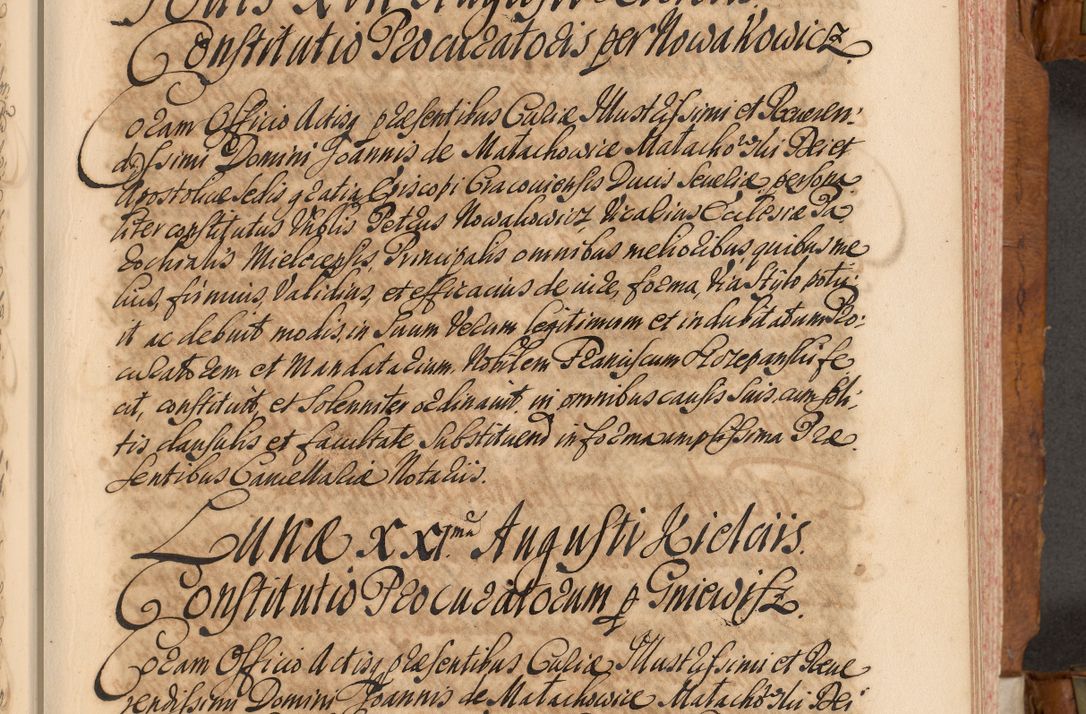 XVII Augusti
Constitutio Procuratoris per Nowakowicz
Coram Officio Actisq præsentibus Curiæ Illustrissimi et Reveren:
dissimi Domini Joannis de Małachowice Małachowski Dei et
Apostolicæ Sedis gratia Episcopi Cracoviensis Ducis Severiæ, persona
liter constitutus Nblis Petrus Nowakowicz, Vicarius Ecclesiæ Pa
rochialis Mielecensis, Principalis omnibus melioribus quibus me
lius, firmius, validius, et efficacius de iure, forma, via stylo potu:
it ac debuit modis, in suum verum legitimum et indubitatum Pro:
curatorem et Mandatarium Nobilem Franciscum fe
cit, constituit, et solenniter ordinavit in omnibus causis suis, cum soli:
tis clausulis et facultate substituend in forma amplissima Præ
sentibus Cancellariæ Notariis.
Lunæ XXIma Augusti Kielciis.
Constitutio Procuratorum p Gniewisz.
Coram Officio Actisq præsentibus Curiæ Illustrissimi et Reve
rendissimi Domini Joannis de Małachowice Małachowski Dei